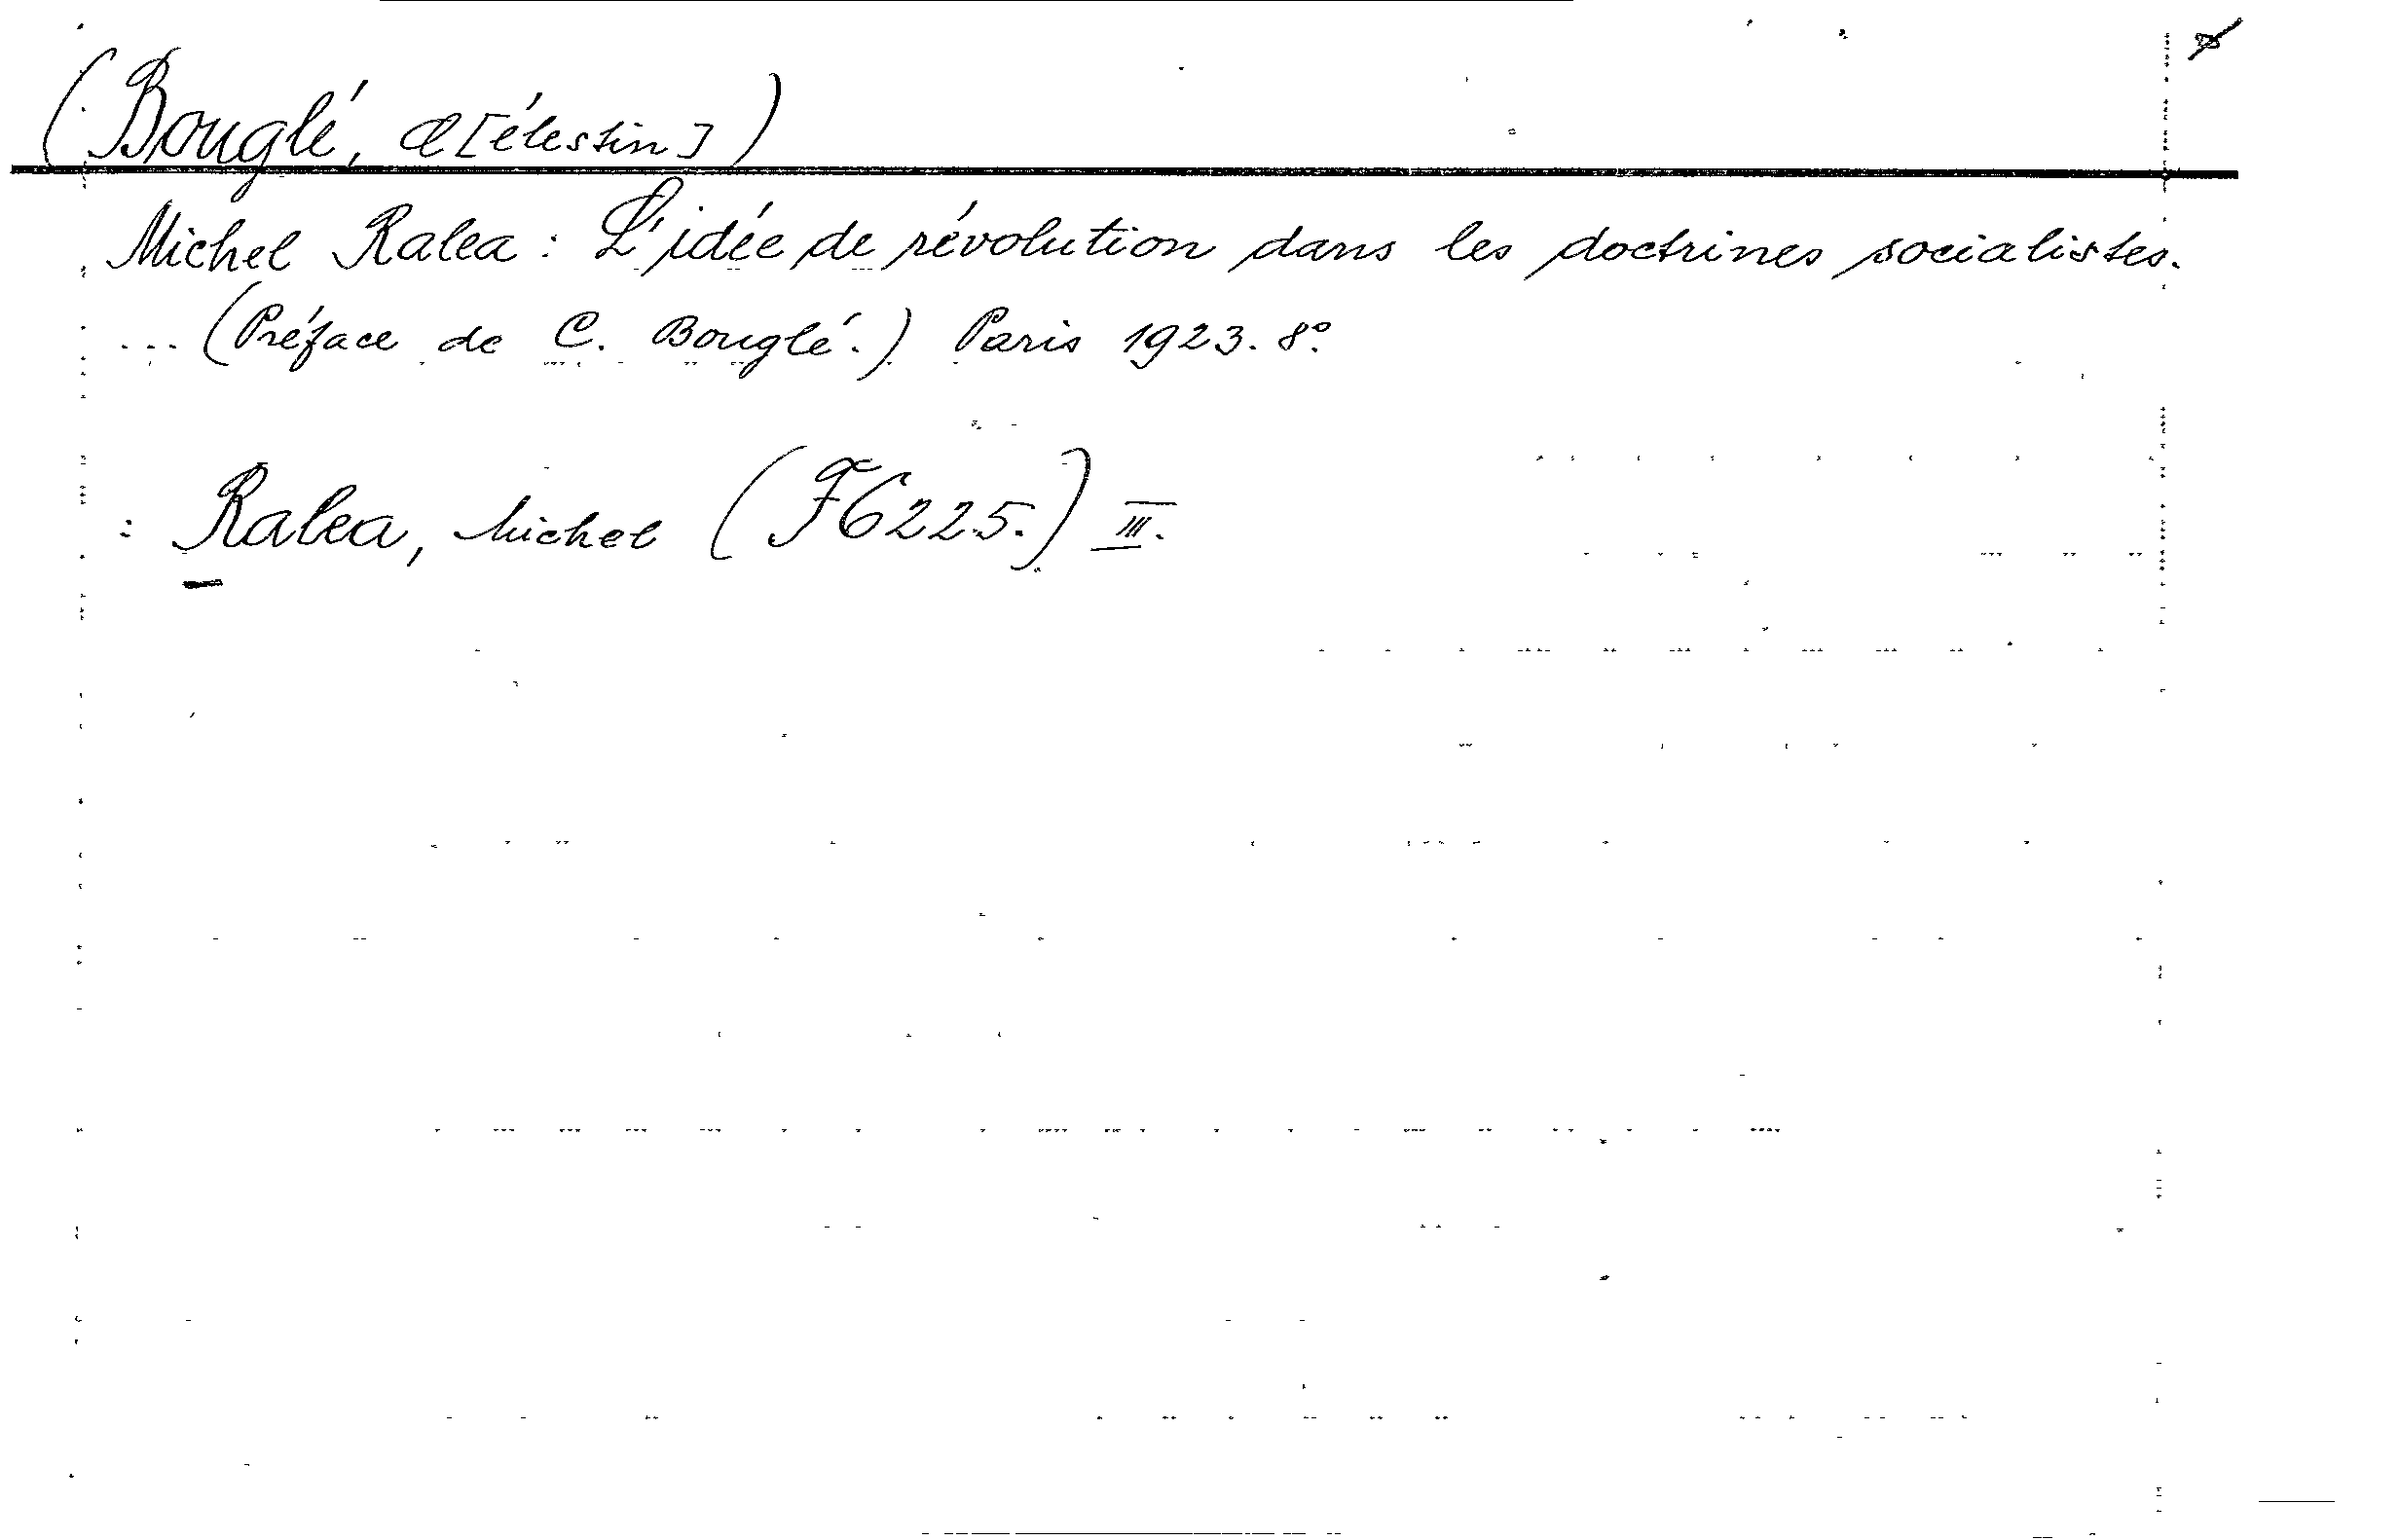 (Bouglé, C[élestin])
Michel Ralea: L'idée de révolution dans les doctrines socialistes.
... (Préface de C. Bouglé.) Paris 1923. 8°.
: Ralea, Michel (F6225.) III.